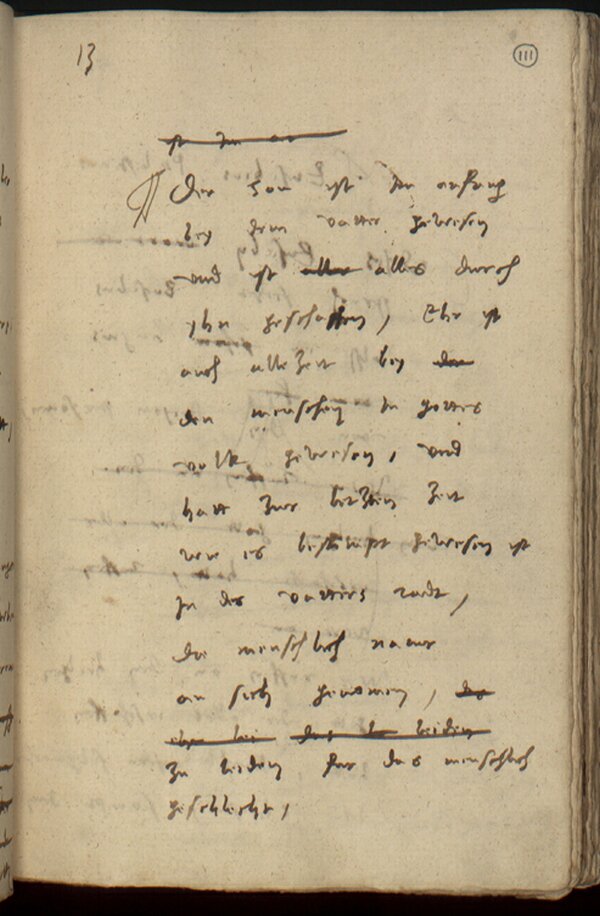 13
111
ist Im an
Der son ist Im anfang
bey dem vatter gewesen
vnd ist aller alles durch
yhn geschaffen, Ehr ist
auch alle Zeit bey den
den menschen In gottes
volk gewesen, vnd
hatt Zur letzten Zeit
wie es bestimpt gewesen ist
In des vatters radt,
die menschlich natur
an sich genomen, das
das leiden
Zu leiden fur das menschlich
geschlecht,